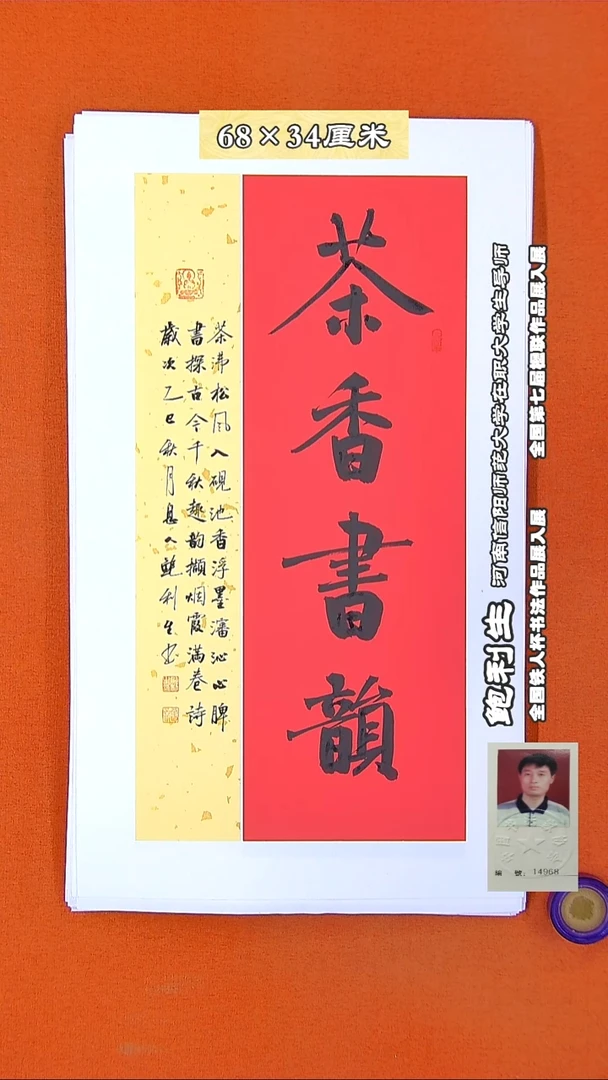 68×34厘米
茶香書韻
茶沸松风入砚池香浮墨瀋沁心脾
書探古今千秋趣韵擷烟霞满卷诗
歲次乙巳秋月息人鲍利生书
河南信阳师范大学在职大学生导师
鲍利生
全国第七届楹联作品展入展
全国铁人杯书法作品展入展
編號：14968